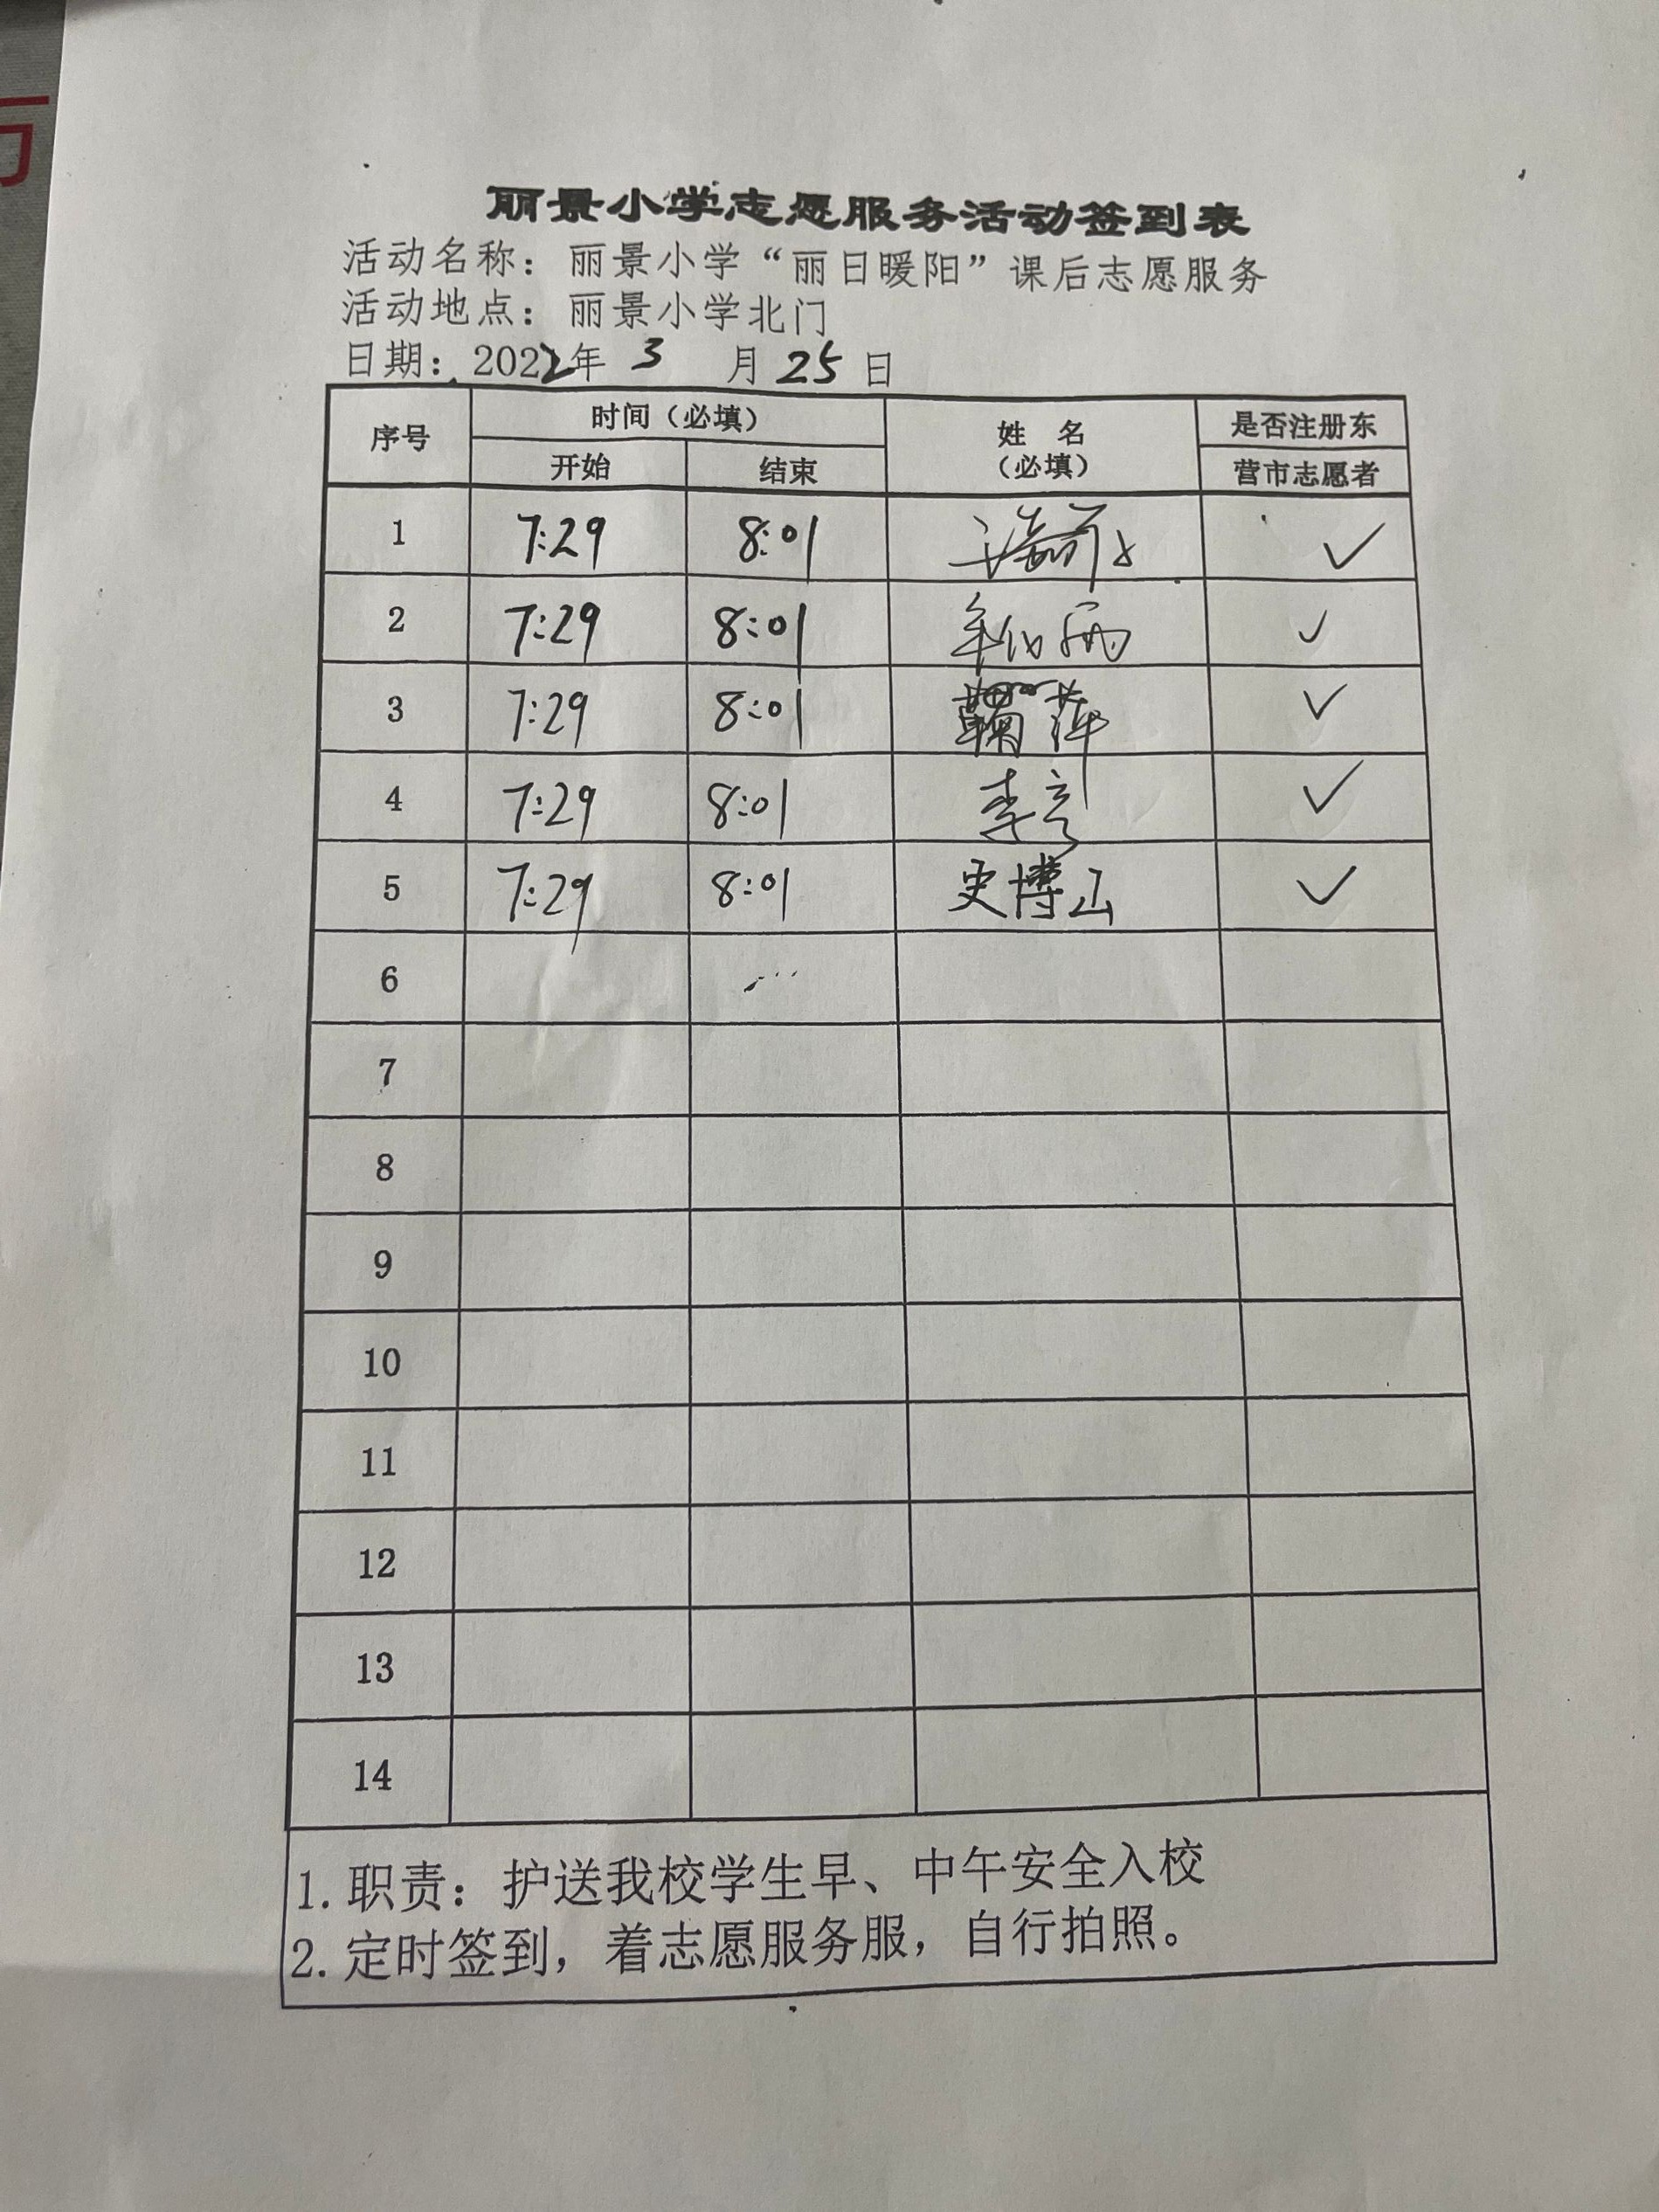 丽景小学志愿服务活动签到表
活动名称：丽景小学“丽日暖阳”课后志愿服务
活动地点：丽景小学北门
日期：2022年 3 月 25 日
序号 时间（必填） 姓 名（必填） 是否注册东营市志愿者
开始 结束
1 7:29 8:01 ✓
2 7:29 8:01 ✓
3 7:29 8:01 鞠萍 ✓
4 7:29 8:01 李 ✓
5 7:29 8:01 史博山 ✓
6
7
8
9
10
11
12
13
14
1. 职责：护送我校学生早、中午安全入校
2. 定时签到，着志愿服务服，自行拍照。